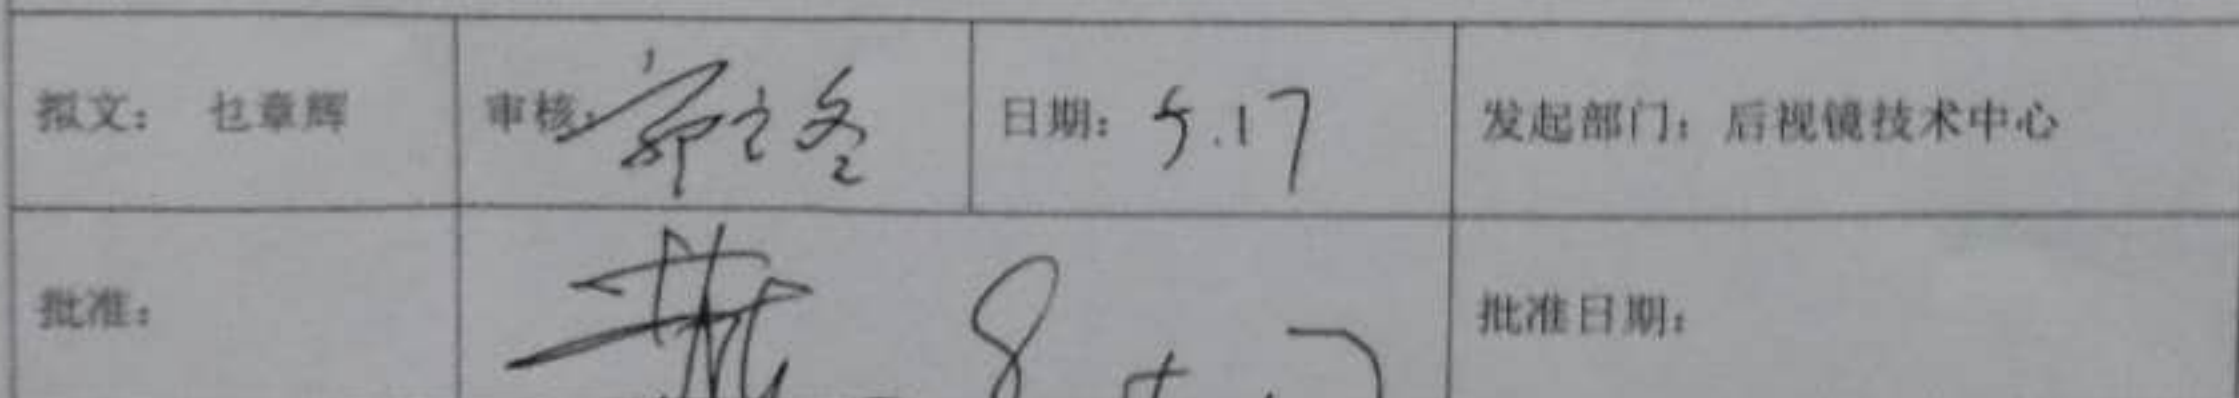 拟文： 乜章辉 审核： 日期：5.17 发起部门：后视镜技术中心
批准： 批准日期：